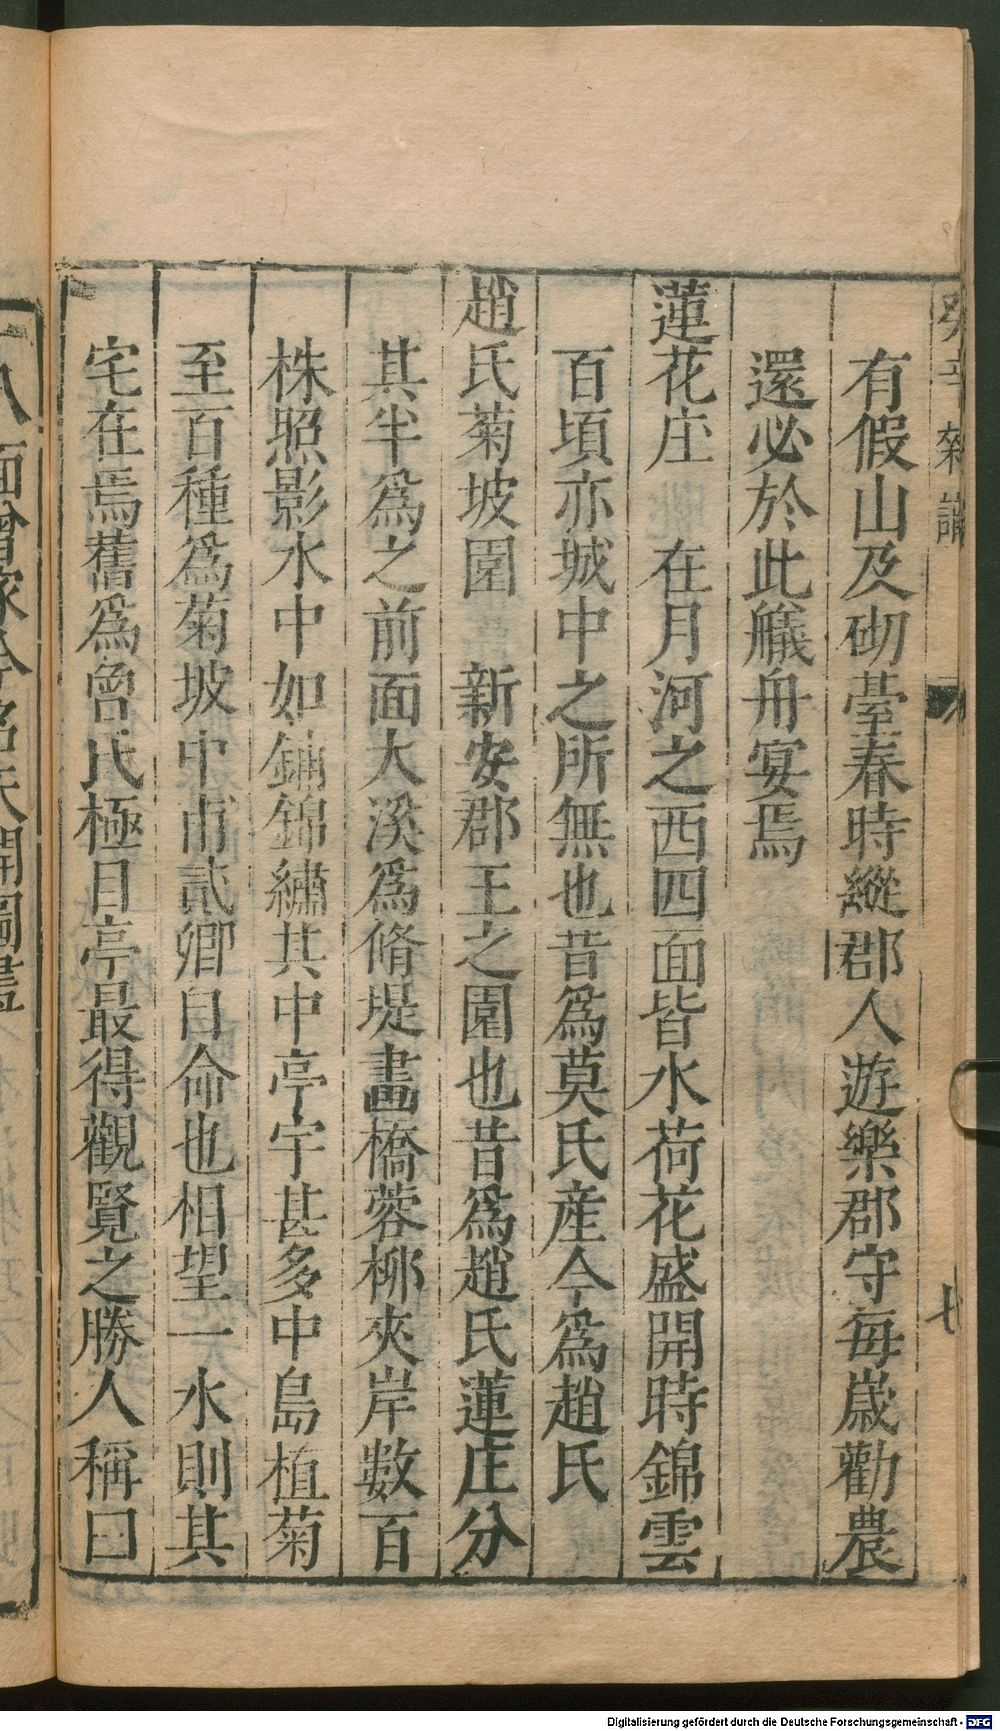 癸辛雜識
七
有假山及砌臺春時縱郡人遊樂郡守每歲勸農
還必於此艤舟宴焉
蓮花庄　在月河之西四面皆水荷花盛開時錦雲
百頃亦城中之所無也昔為莫氏産今為趙氏
趙氏菊坡園　新安郡王之園也昔為趙氏蓮庄分
其半為之前面大溪為脩堤畫橋蓉柳夾岸數百
株照影水中如鋪錦繡其中亭宇甚多中島植菊
至百種為菊坡中甫貳卿自命也相望一水則其
宅在焉舊為曾氏極目亭最得觀覽之勝人稱曰
Digitalisierung gefördert durch die Deutsche Forschungsgemeinschaft - DFG